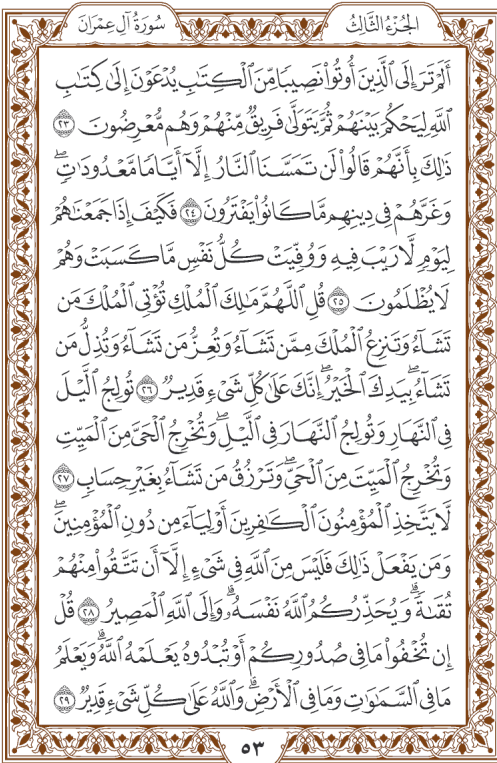 سُورَةُ آلِ عِمْرَانَ
الجُزْءُ الثَّالِثُ
أَلَمْ تَرَ إِلَى ٱلَّذِينَ أُوتُوا۟ نَصِيبًا مِّنَ ٱلْكِتَٰبِ يُدْعَوْنَ إِلَىٰ كِتَٰبِ
ٱللَّهِ لِيَحْكُمَ بَيْنَهُمْ ثُمَّ يَتَوَلَّىٰ فَرِيقٌ مِّنْهُمْ وَهُم مُّعْرِضُونَ ٢٣
ذَٰلِكَ بِأَنَّهُمْ قَالُوا۟ لَن تَمَسَّنَا ٱلنَّارُ إِلَّآ أَيَّامًا مَّعْدُودَٰتٍ ۖ
وَغَرَّهُمْ فِى دِينِهِم مَّا كَانُوا۟ يَفْتَرُونَ ٢٤ فَكَيْفَ إِذَا جَمَعْنَٰهُمْ
لِيَوْمٍ لَّا رَيْبَ فِيهِ وَوُفِّيَتْ كُلُّ نَفْسٍ مَّا كَسَبَتْ وَهُمْ
لَا يُظْلَمُونَ ٢٥ قُلِ ٱللَّهُمَّ مَٰلِكَ ٱلْمُلْكِ تُؤْتِى ٱلْمُلْكَ مَن
تَشَآءُ وَتَنزِعُ ٱلْمُلْكَ مِمَّن تَشَآءُ وَتُعِزُّ مَن تَشَآءُ وَتُذِلُّ مَن
تَشَآءُ ۖ بِيَدِكَ ٱلْخَيْرُ ۖ إِنَّكَ عَلَىٰ كُلِّ شَىْءٍ قَدِيرٌ ٢٦ تُولِجُ ٱلَّيْلَ
فِى ٱلنَّهَارِ وَتُولِجُ ٱلنَّهَارَ فِى ٱلَّيْلِ ۖ وَتُخْرِجُ ٱلْحَىَّ مِنَ ٱلْمَيِّتِ
وَتُخْرِجُ ٱلْمَيِّتَ مِنَ ٱلْحَىِّ ۖ وَتَرْزُقُ مَن تَشَآءُ بِغَيْرِ حِسَابٍ ٢٧
لَّا يَتَّخِذِ ٱلْمُؤْمِنُونَ ٱلْكَٰفِرِينَ أَوْلِيَآءَ مِن دُونِ ٱلْمُؤْمِنِينَ ۖ
وَمَن يَفْعَلْ ذَٰلِكَ فَلَيْسَ مِنَ ٱللَّهِ فِى شَىْءٍ إِلَّآ أَن تَتَّقُوا۟ مِنْهُمْ
تُقَىٰةً ۗ وَيُحَذِّرُكُمُ ٱللَّهُ نَفْسَهُۥ ۗ وَإِلَى ٱللَّهِ ٱلْمَصِيرُ ٢٨ قُلْ
إِن تُخْفُوا۟ مَا فِى صُدُورِكُمْ أَوْ تُبْدُوهُ يَعْلَمْهُ ٱللَّهُ ۗ وَيَعْلَمُ
مَا فِى ٱلسَّمَٰوَٰتِ وَمَا فِى ٱلْأَرْضِ ۗ وَٱللَّهُ عَلَىٰ كُلِّ شَىْءٍ قَدِيرٌ ٢٩
٥٣